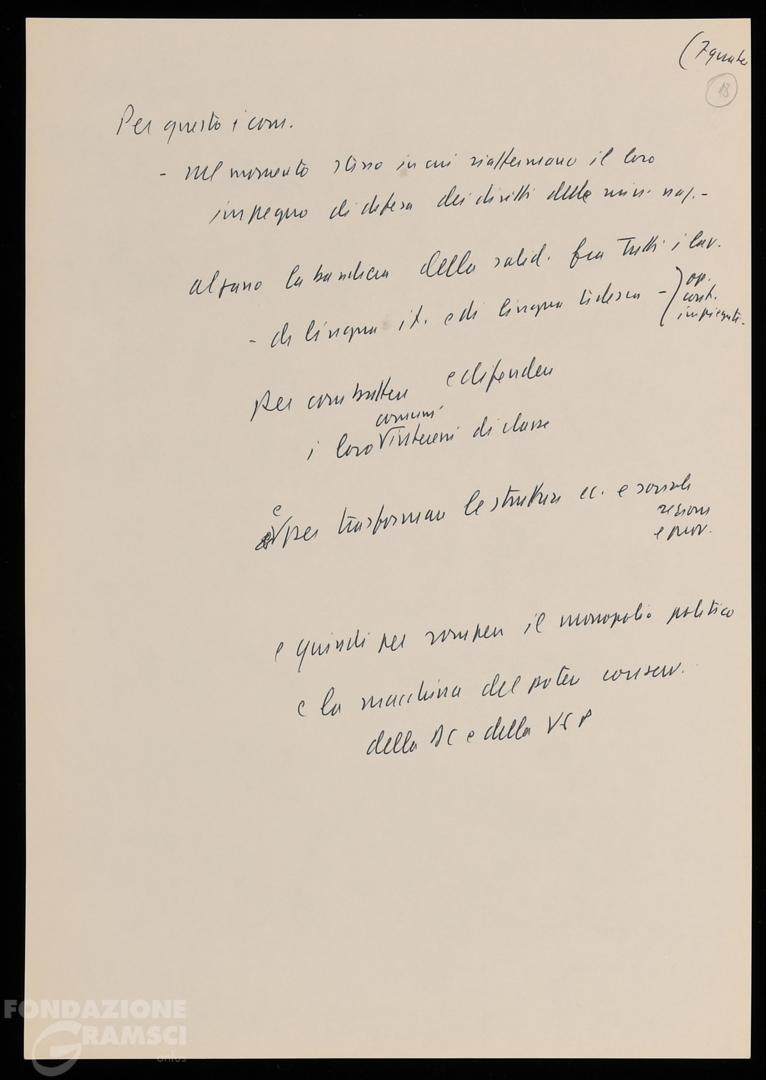 (7 quater
18
Per questo i com.
- nel momento stesso in cui riaffermano il loro
impegno di difesa dei diritti delle min. naz. -
alzano la bandiera della solid. fra tutti i lav.
- di lingua it. e di lingua tedesca - ) op.
cont.
impiegati.
per combattere e difendere
comuni
i loro √ interessi di classe
e
√ per trasformare le strutture ec. e sociali
region
e prov.
e quindi per rompere il monopolio politico
e la macchina del potere conserv.
della DC e della VSP
FONDAZIONE
GRAMSCI
onlus